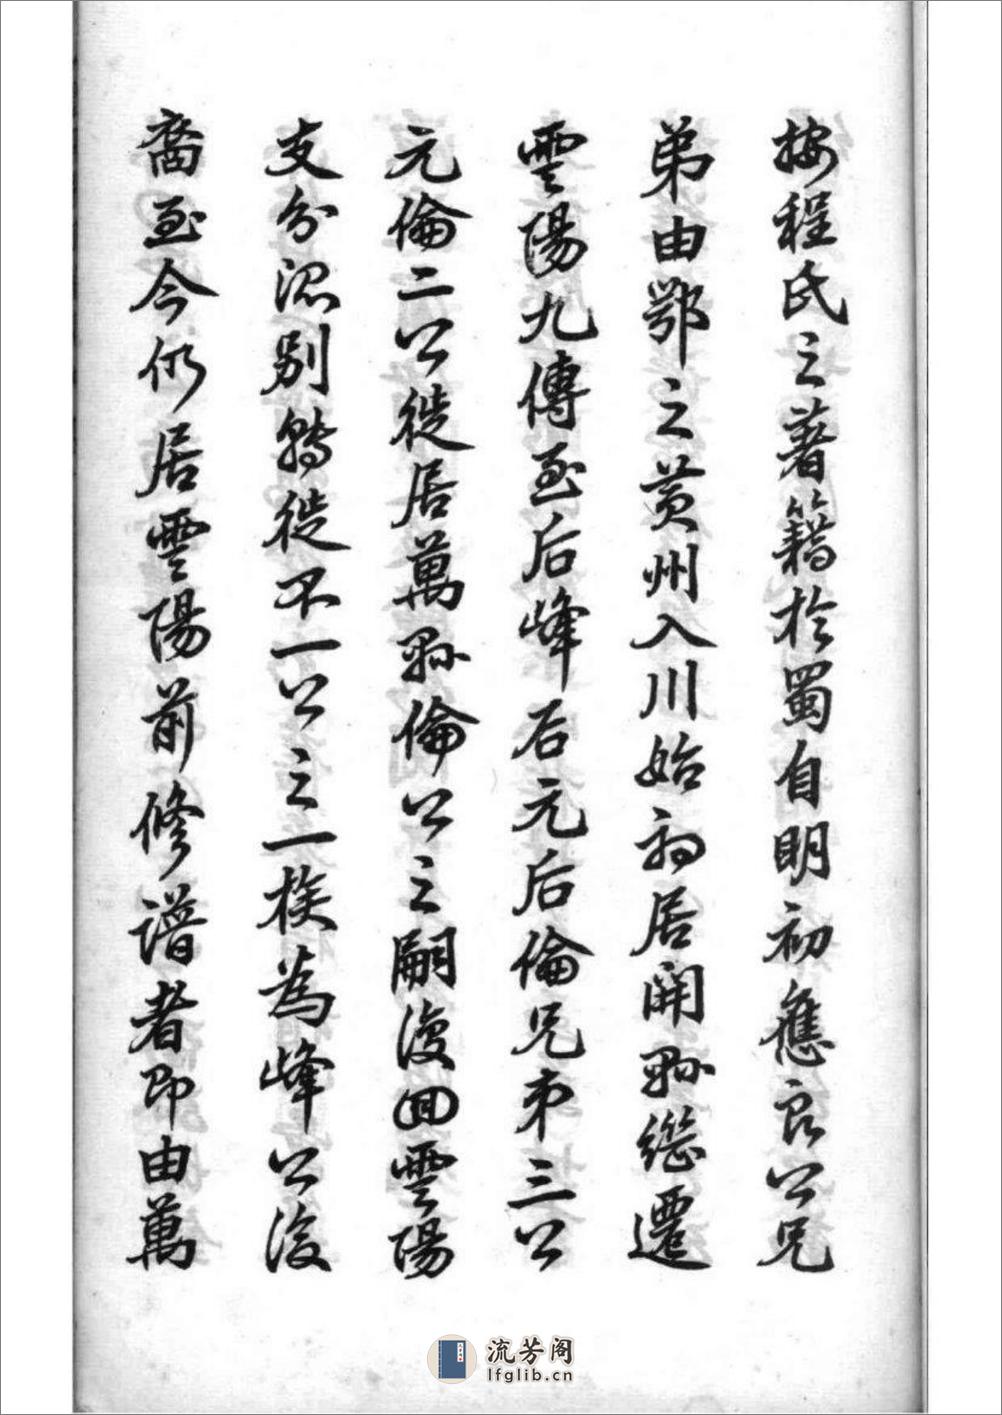 按程氏之著籍於蜀自明初應良公兄
弟由鄂之黄州入川始初居開縣繼遷
雲陽九傳至后峰后元后倫兄弟三公
元倫二公徙居萬縣倫公之嗣復回雲陽
支分派別轉徙不一公之一族為峰公後
裔至今仍居雲陽前修譜者即由萬
流芳阁
lfglib.cn